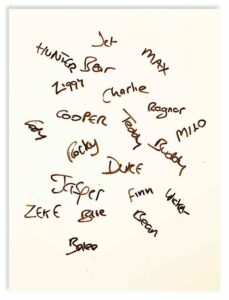 Jet
HUNTER Bear MAX
Ziggy Charlie
COOPER Ragnar
Teddy MILO
Rocky Buddy
DUKE
Jasper Finn
ZEKE Blue Bean